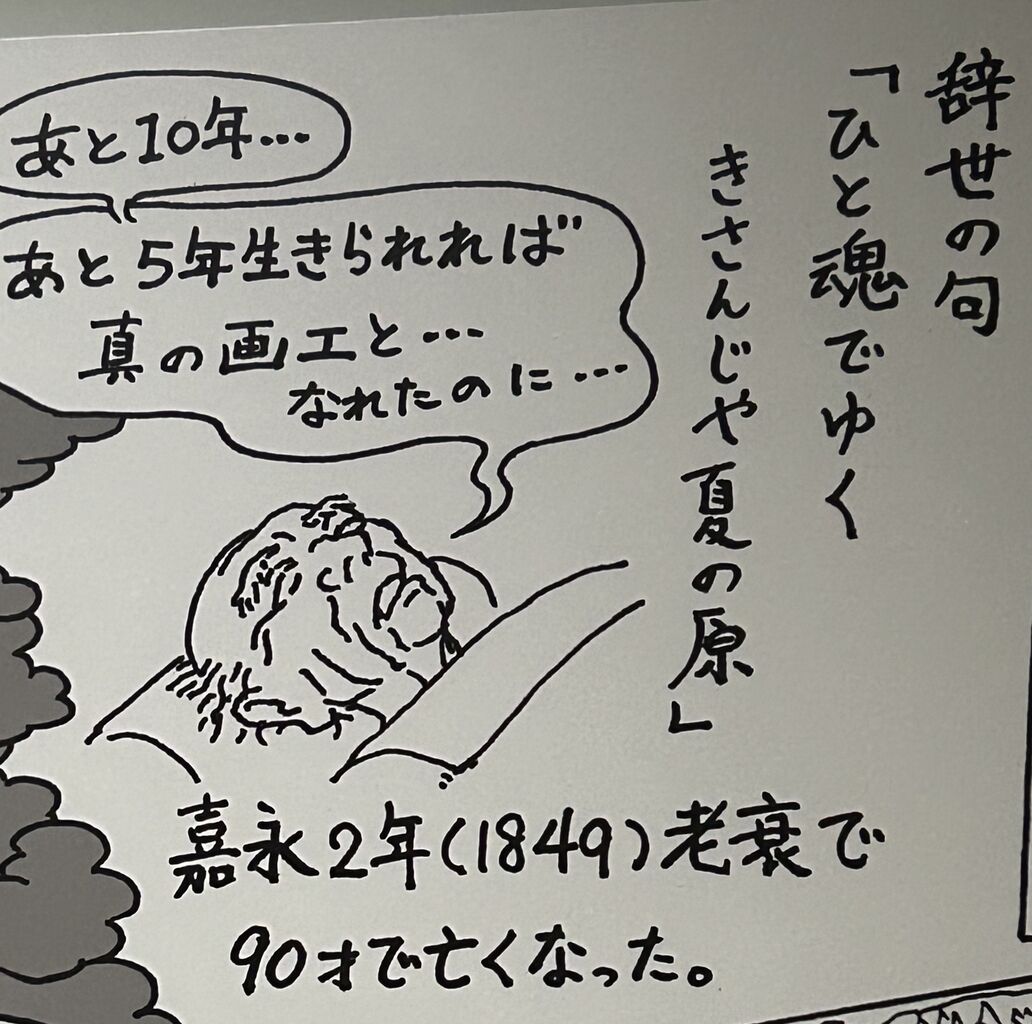 辞世の句
「ひと魂でゆく
きさんじや夏の原」
あと10年…
あと5年生きられれば
真の画工と…
なれたのに…
嘉永2年(1849)老衰で
90才で亡くなった。